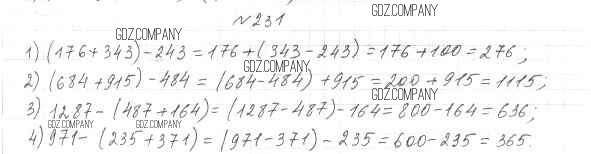 №231
GDZ.COMPANY
GDZ.COMPANY
1) (176+343)-243=176+(343-243)=176+100=276;
GDZ.COMPANY
2) (684+915)-484=(684-484)+915=200+915=1115;
GDZ.COMPANY
3) 1287-(487+164)=(1287-487)-164=800-164=636;
GDZ.COMPANY GDZ.COMPANY
4) 971-(235+371)=(971-371)-235=600-235=365.